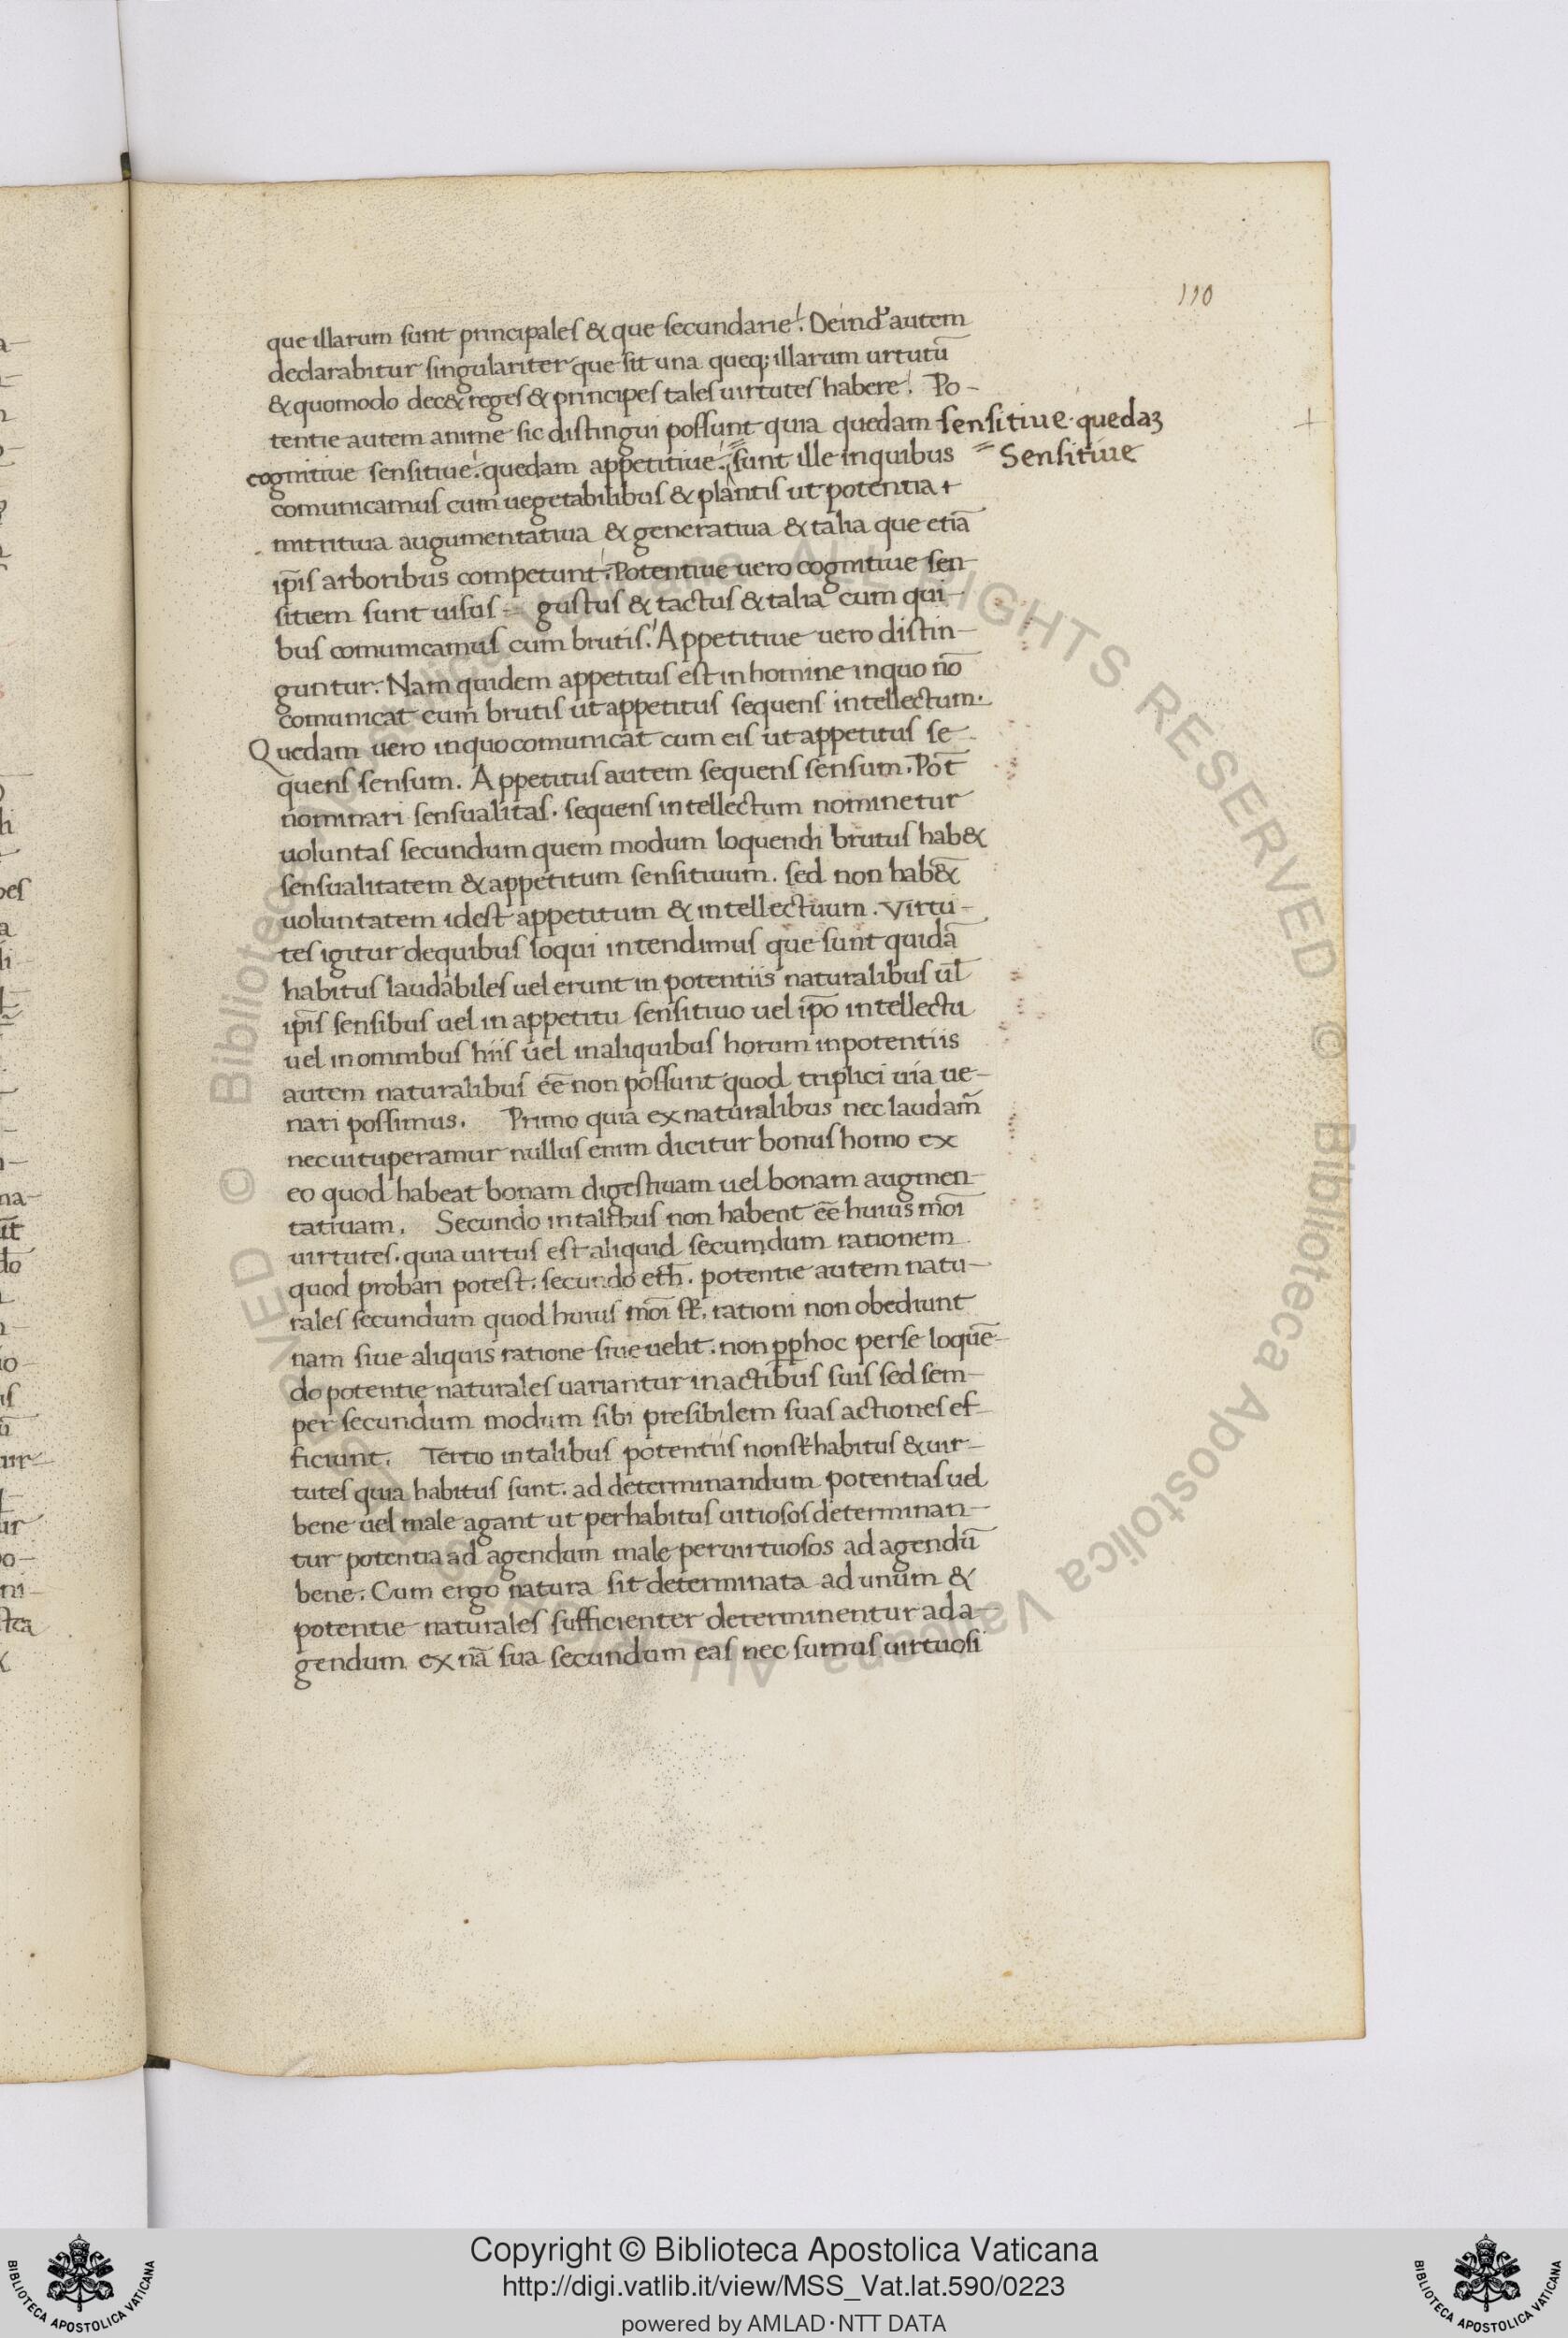 110
que illarum sunt principales & que secundarie. Deind' autem
declarabitur singulariter que sit una queq; illarum urtutū
& quomodo dec& reges & principes tales uirtutes habere. Po-
tentie autem anime sic distingui possunt quia quedam sensitiue quedaꝫ
cognitiue sensitiue. quedam appetitiue. sunt ille inquibus = Sensitiue
comunicamus cum uegetabilibus & plantis ut potentia
nutritiua augumentatiua & generatiua & talia que etiā
ip̄is arboribus competunt. Potentiue uero cognitiue sen-
sitiem sunt uisus gustus & tactus & talia cum qui-
bus comunicamus cum brutis. Appetitiue uero distin-
guntur. Nam quidem appetitus est in homine inquo nō
comunicat cum brutis ut appetitus sequens intellectum.
Quedam uero inquo comunicat cum eis ut appetitus se-
quens sensum. Appetitus autem sequens sensum. Pōt
nominari sensualitas. sequens intellectum nominetur
uoluntas secundum quem modum loquendi brutus hab&
sensualitatem & appetitum sensitiuum. sed non hab&
uoluntatem idest appetitum & intellectiuum. Virtu-
tes igitur dequibus loqui intendimus que sunt quidā
habitus laudabiles uel erunt in potentiis naturalibus ūl
ip̄is sensibus uel in appetitu sensitiuo uel ip̄o intellectu
uel inomnibus hiis uel inaliquibus horum inpotentiis
autem naturalibus ēe non possunt quod triplici uia ue-
nari possimus. Primo quia ex naturalibus nec laudam̄
nec uituperamur nullus enim dicitur bonus homo ex
eo quod habeat bonam digestiuam uel bonam augmen-
tatiuam. Secundo in talibus non habent ēe huius mōi
uirtutes. quia uirtus est aliquid secumdum rationem
quod probari potest. secundo eth̄. potentie autem natu-
rales secundum quod huius mōi st̄. rationi non obediunt
nam siue aliquis ratione siue uelit. non pp̱hoc perse loquē-
do potentie naturales uariantur inactibus suis sed sem-
per secundum modum sibi presibilem suas actiones ef-
ficiunt. Tertio in talibus potentiis non st̄ habitus & uir-
tutes quia habitus sunt. ad determinandum potentias uel
bene uel male agant ut perhabitus uitiosos determinan-
tur potentia ad agendum male peruirtuosos ad agendū
bene. Cum ergo natura sit determinata ad unum &
potentie naturales sufficienter determinentur ad a-
gendum ex nā sua secundum eas nec sumus uirtuosi
© Biblioteca Apostolica Vaticana ALL RIGHTS RESERVED
© Biblioteca Apostolica Vaticana ALL RIGHTS RESERVED
Copyright © Biblioteca Apostolica Vaticana
http://digi.vatlib.it/view/MSS_Vat.lat.590/0223
powered by AMLAD·NTT DATA
BIBLIOTECA APOSTOLICA VATICANA
BIBLIOTECA APOSTOLICA VATICANA